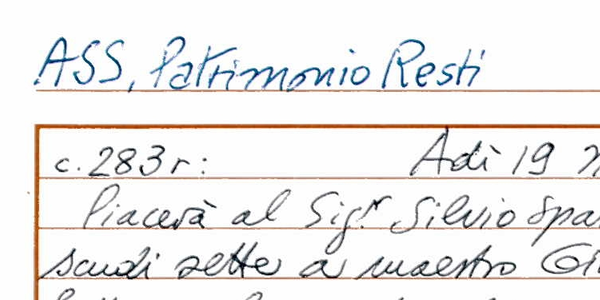 ASS, Patrimonio Resti
c. 283r: Adì 19
Piacerà al Sig.r Silvio
scudi sette a maestro